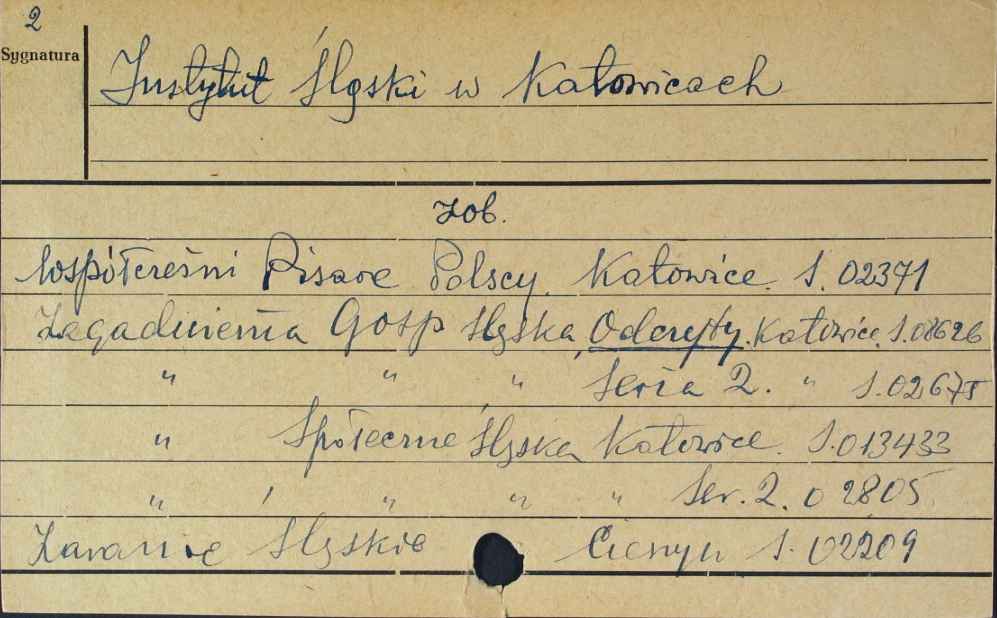 2
Sygnatura
Instytut Śląski w Katowicach
zob.
Współcześni Pisarze Polscy. Katowice. S. 02371
Zagadnienia Gosp Śląska, Odczyty. Katowice. S.02626
" " " Seria 2. " S.02675
" Społeczne Śląska Katowice. S.013433
" " " " Ser. 2. 02805
Zaranie Śląskie Cieszyn S. 02209